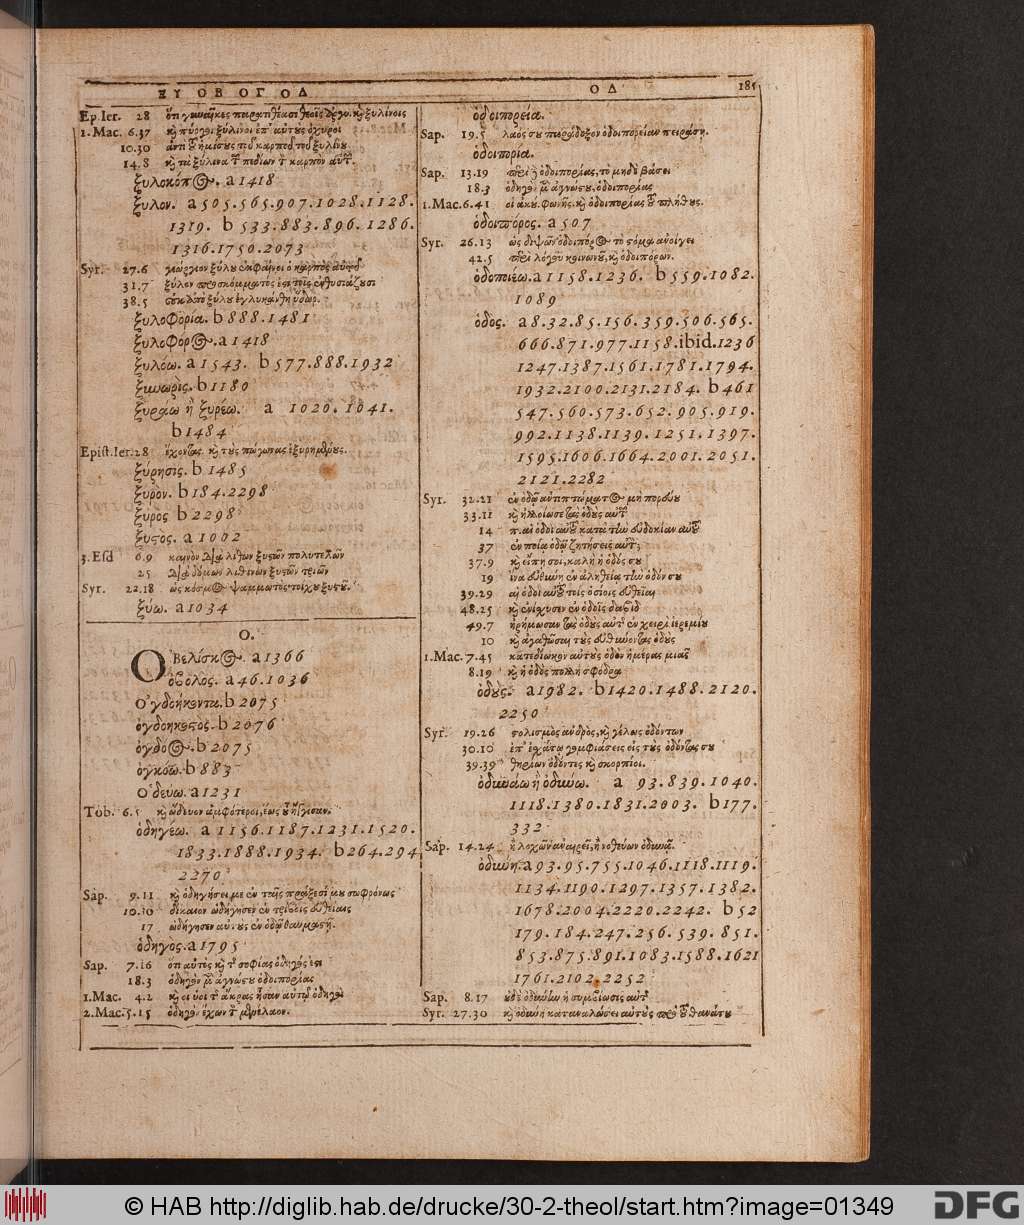 ΞΥ ΟΒ ΟΓ ΟΔ
ΟΔ 185
Ep. Ier. 28 ὅτι γυναῖκες παρατιθέασι θεοῖς ξυλίνοις
1. Mac. 6.37 καὶ πύργοι ξύλινοι ἐπ' αὐτοὺς ὀχυροὶ
10.30 ἀντὶ τοῦ ἡμίσους τοῦ καρποῦ τοῦ ξυλίνου
14.8 καὶ τὰ ξύλινα τῶν πεδίων τὸν καρπὸν αὐτῶν.
ξυλοκόπος. a 1418
ξύλον. a 505.565.907.1028.1128.
1319. b 533.883.896.1286.
1316.1750.2073
Syr. 27.6 γεώργιον ξύλου ἐκφαίνει ὁ καρπὸς αὐτοῦ
31.7 ξύλον προσκόμματός ἐστι τοῖς ἐνθυσιάζουσι
38.5 οὐκ ἀπὸ ξύλου ἐγλυκάνθη ὕδωρ.
ξυλοφορία. b 888.1481
ξυλοφόρος. a 1418
ξυλόω. a 1543. b 577.888.1932
ξυνωρὶς. b 1180
ξυράω ἢ ξυρέω. a 1020.1041.
b 1484
Epist. Ier. 28 ἔχοντας καὶ τοὺς πώγωνας ἐξυρημένους.
ξύρησις. b 1485
ξυρὸν. b 184.2298
ξύρος b 2298
ξυστὸς. a 1002
3. Esd 6.9 καινὸν διὰ λίθων ξυστῶν πολυτελῶν
25 διὰ δόμων λιθίνων ξυστῶν τριῶν
Syr. 22.18 ὡς κόσμος ψαμμωτὸς τοίχου ξυστοῦ.
ξύω. a 1034
Ο.
Ὀβελίσκος. a 1366
ὀβολὸς. a 46.1036
Ὀγδοήκοντα. b 2075
ὀγδοηκοστὸς. b 2076
ὄγδοος. b 2075
ὀγκόω. b 883
Ὁδεύω. a 1231
Tob. 6.5 καὶ ὥδευον ἀμφότεροι, ἕως οὗ ἤγγισαν.
ὁδηγέω. a 1156.1187.1231.1520.
1833.1888.1934. b 264.294
2270
Sap. 9.11 καὶ ὁδηγήσει με ἐν ταῖς πράξεσί μου σωφρόνως
10.10 δίκαιον ὡδήγησεν ἐν τρίβοις εὐθείαις
17 ὡδήγησεν αὐτοὺς ἐν ὁδῷ θαυμαστῇ.
ὁδηγος. a 1795
Sap. 7.16 ὅτι αὐτὸς καὶ τῆς σοφίας ὁδηγός ἐστι
18.3 ὁδηγὸν μὲν ἀγνώστου ὁδοιπορίας
1. Mac. 4.2 καὶ οἱ υἱοὶ τῆς ἄκρας ἦσαν αὐτῷ ὁδηγοὶ
2. Mac. 5.15 ὁδηγὸν ἔχων τὸν μενέλαον.
ὁδοιπορεία.
Sap. 19.5 λαός σου παράδοξον ὁδοιπορείαν πειράσῃ.
ὁδοιπορία.
Sap. 13.19 περὶ δὲ ὁδοιπορίας, τὸ μηδὲ βάσει
18.3 ὁδηγὸν μὲν ἀγνώστου, ὁδοιπορίας
1. Mac. 6.41 οἱ ἀκού. φωνῆς. καὶ ὁδοιπορίας τοῦ πλήθους.
ὁδοιπόρος. a 507
Syr. 26.13 ὡς διψῶν ὁδοιπόρος τὸ στόμα ἀνοίγει
42.5 περὶ λόγου κοινωνοῦ, καὶ ὁδοιπόρων.
ὁδοποιέω. a 1158.1236. b 559.1082.
1089
ὁδος. a 8.32.85.156.359.506.565.
666.871.977.1158.ibid.1236
1247.1387.1561.1781.1794.
1932.2100.2131.2184. b 461
547.560.573.652.905.919.
992.1138.1139.1251.1397.
1595.1606.1664.2001.2051.
2121.2282
Syr. 32.21 ἐν ὁδῷ ἀντιπτώματος μὴ πορεύου
33.11 καὶ ἠλλοίωσε τὰς ὁδοὺς αὐτῶν
14 π. αἱ ὁδοὶ αὐτοῦ κατὰ τὴν εὐδοκίαν αὐτοῦ
37 ἐν ποίᾳ ὁδῷ ζητήσεις αὐτόν;
37.9 καὶ εἴπῃ σοι, καλὴ ἡ ὁδός σου
19 ἵνα εὐθύνῃ ἐν ἀληθείᾳ τὴν ὁδόν σου
39.29 αἱ ὁδοὶ αὐτοῦ τοῖς ὁσίοις εὐθεῖαι
48.25 καὶ ἐνίσχυσεν ἐν ὁδοῖς δαβὶδ
49.7 ἠρήμωσαν τὰς ὁδοὺς αὐτῆς ἐν χειρὶ ἱερεμίου
10 καὶ ἀγαθῶσαι τοὺς εὐθύνοντας ὁδοὺς
1. Mac. 7.45 κατεδίωκον αὐτοὺς ὁδὸν ἡμέρας μιᾶς
8.19 καὶ ἡ ὁδὸς πολλὴ σφόδρα
ὀδοὺς. a 1982. b 1420.1488.2120.
2250
Syr. 19.26 στολισμὸς ἀνδρὸς, καὶ γέλως ὀδόντων
30.10 ἐπ' ἐσχάτῳ γομφιάσεις τοὺς ὀδόντας σου
39.39 θηρίων ὀδόντες καὶ σκορπίοι.
ὀδυνάω ἢ ὀδυνόω. a 93.839.1040.
1118.1380.1831.2003. b 177.
332
Sap. 14.24 ἢ λοχῶν ἀναιρεῖ, ἢ νοθεύων ὀδυνᾷ.
ὀδύνη. a 93.95.755.1046.1118.1119.
1134.1190.1297.1357.1382.
1678.2004.2220.2242. b 52
179.184.247.256.539.851.
853.875.891.1083.1588.1621
1761.2102.2252
Sap. 8.17 οὐδὲ ὀδύνην ἡ συμβίωσις αὐτῆς
Syr. 27.30 καὶ ὀδύνη καταναλώσει αὐτοὺς πρὸ τοῦ θανάτου
© HAB http://diglib.hab.de/drucke/30-2-theol/start.htm?image=01349
DFG